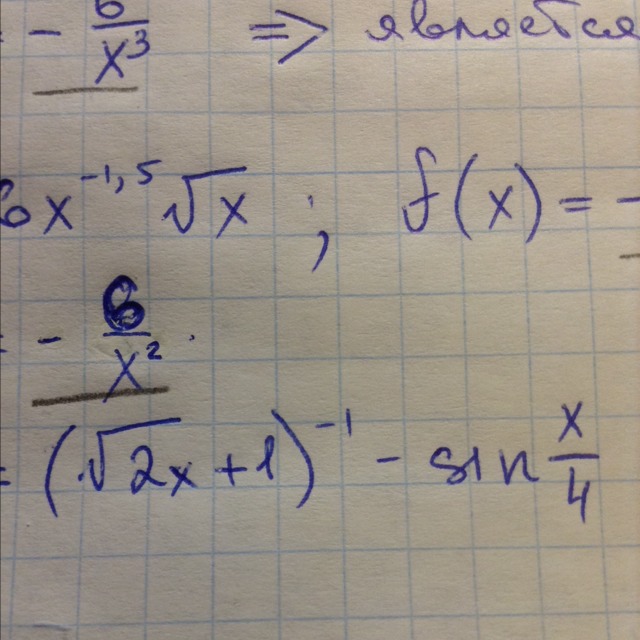 = - 6/x³ => является
6x^-1,5 √x ; f(x) = -
= - 6/x².
= (√2x+1)^-1 - sin x/4